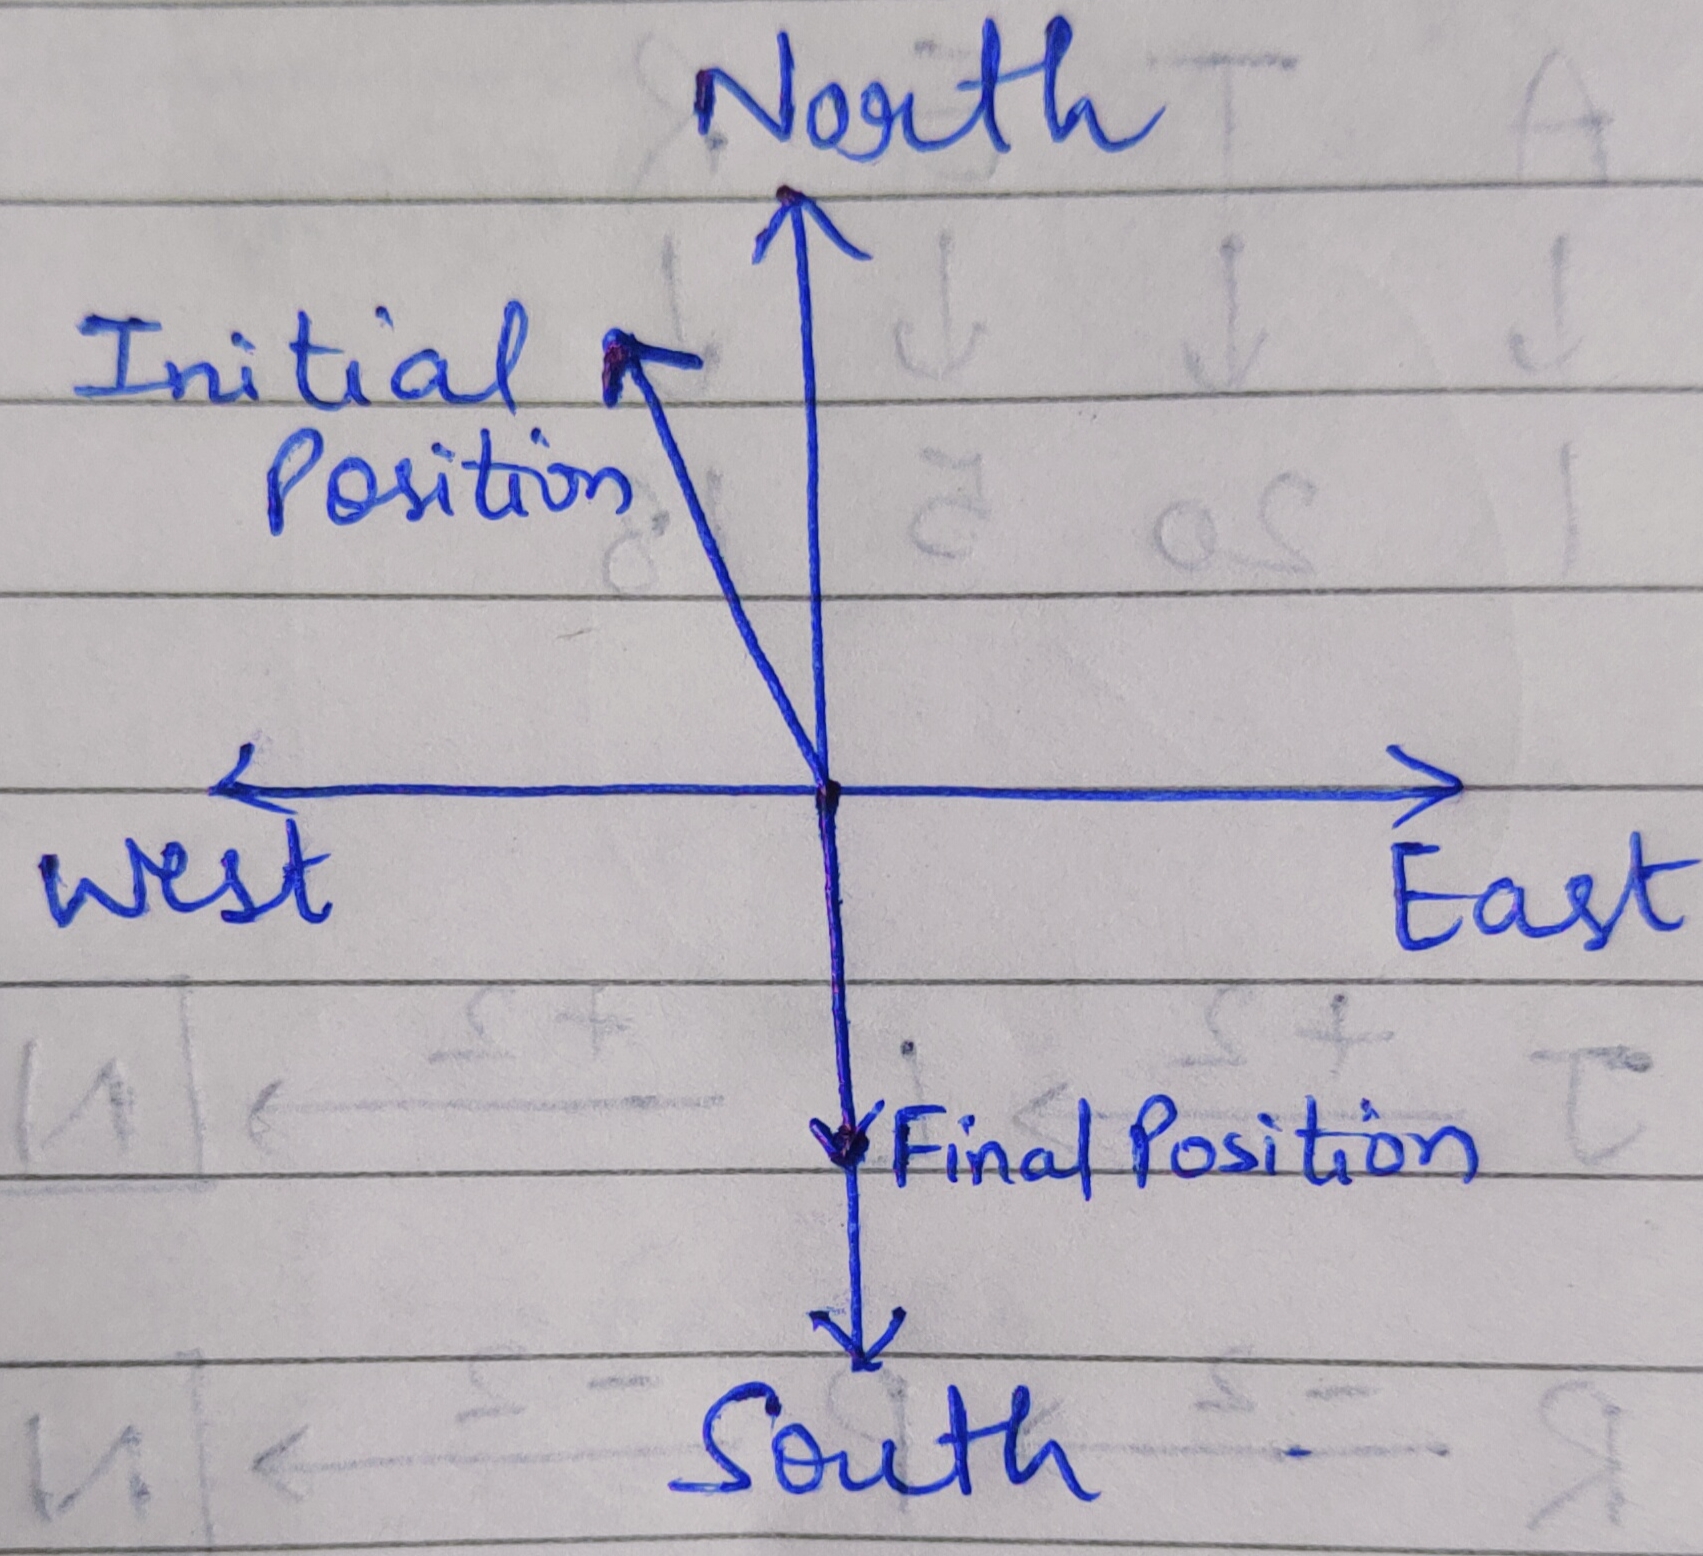 North
Initial
Position
West
East
Final Position
South